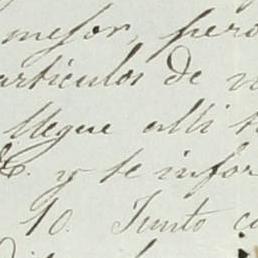 mejor, pero
articulos de
llegue alli
&. y se infor
10. Junto